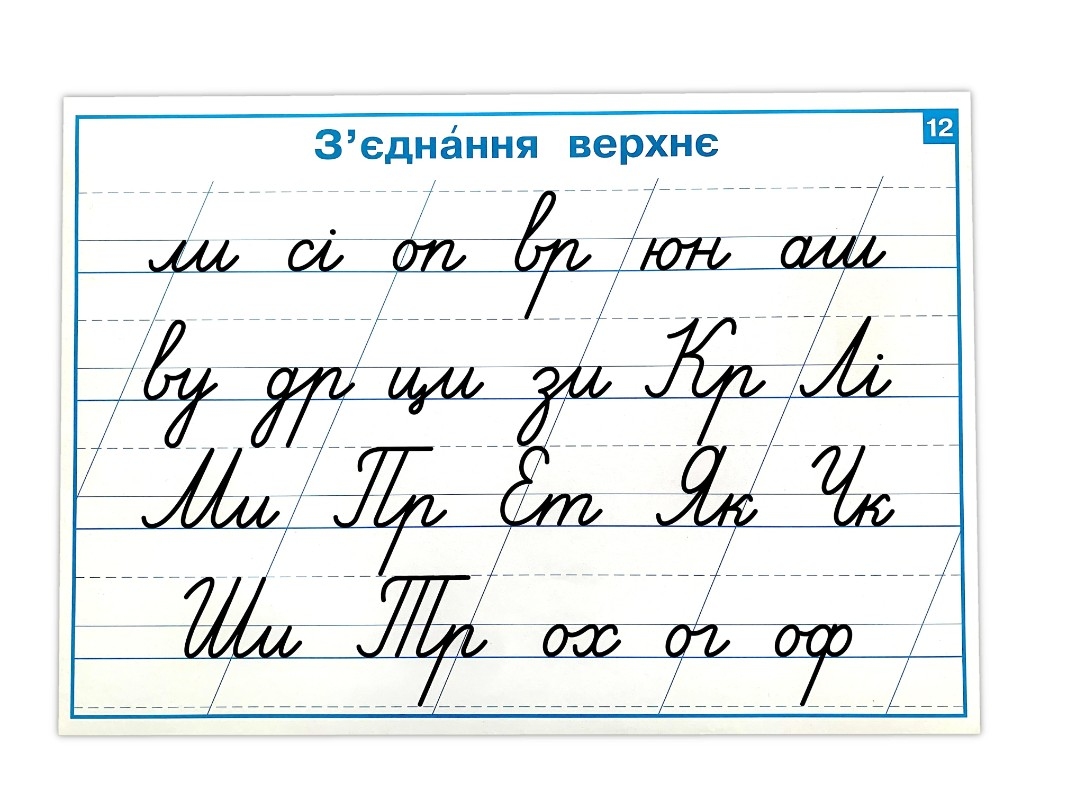 З’єдна́ння верхнє 12
ли сі оп вр юн аш
ву др ци зи Кр Лі
Ми Пр Ет Як Чк
Ши Тр ох ог оф